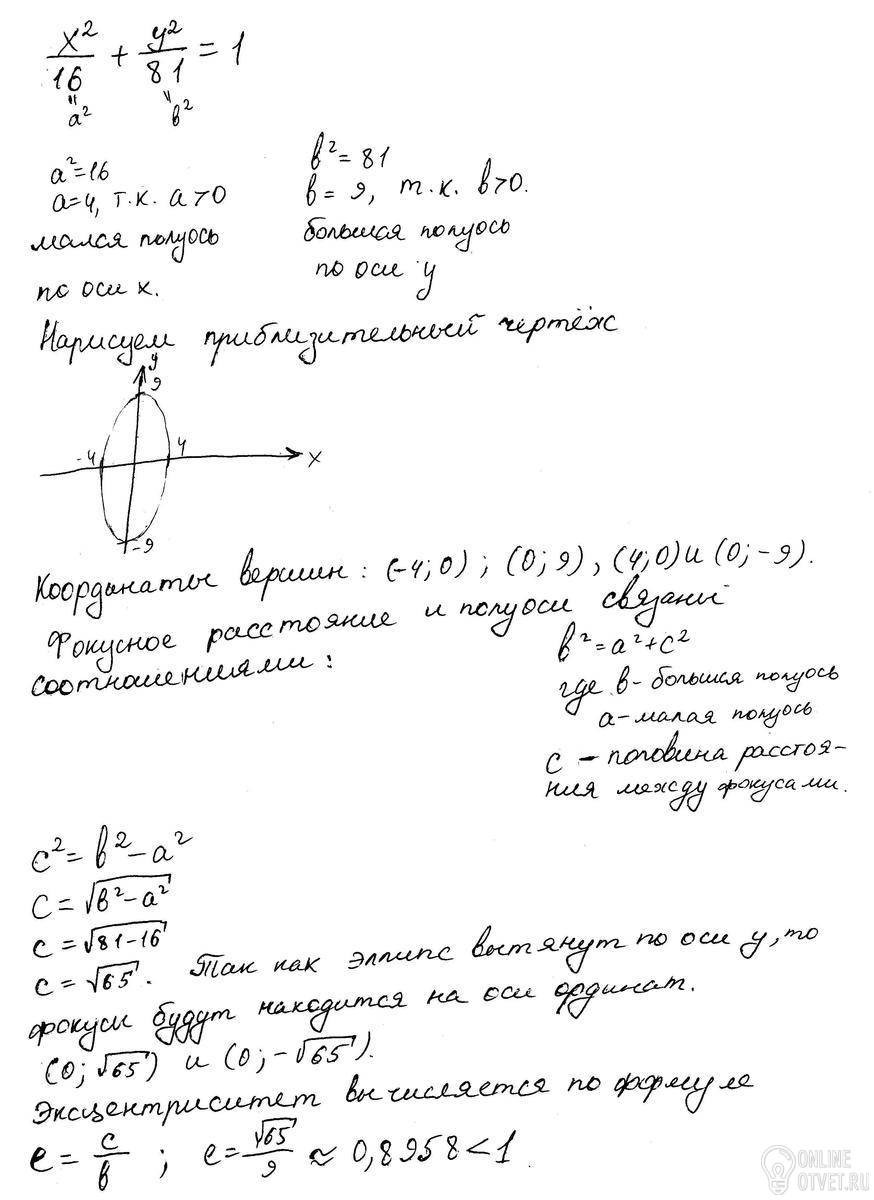 x²/16 + y²/81 = 1
a² b²
a²=16
a=4, т.к. a>0
малая полуось
по оси x.
b²=81
b=9, т.к. b>0.
большая полуось
по оси y
Нарисуем приблизительный чертёж
y
9
-4 4 x
-9
Координаты вершин: (-4;0); (0;9), (4;0) и (0;-9).
Фокусное расстояние и полуоси связаны
соотношениями:
b²=a²+c²
где b- большая полуось
a- малая полуось
c - половина расстоя-
ния между фокусами.
c²=b²-a²
c=√(b²-a²)
c=√(81-16)
c=√65. Так как эллипс вытянут по оси y, то
фокусы будут находится на оси ординат.
(0;√65) и (0;-√65).
Эксцентриситет вычисляется по формуле
e=c/b; e=√65/9≈0,8958<1
ONLINE
OTVET.RU